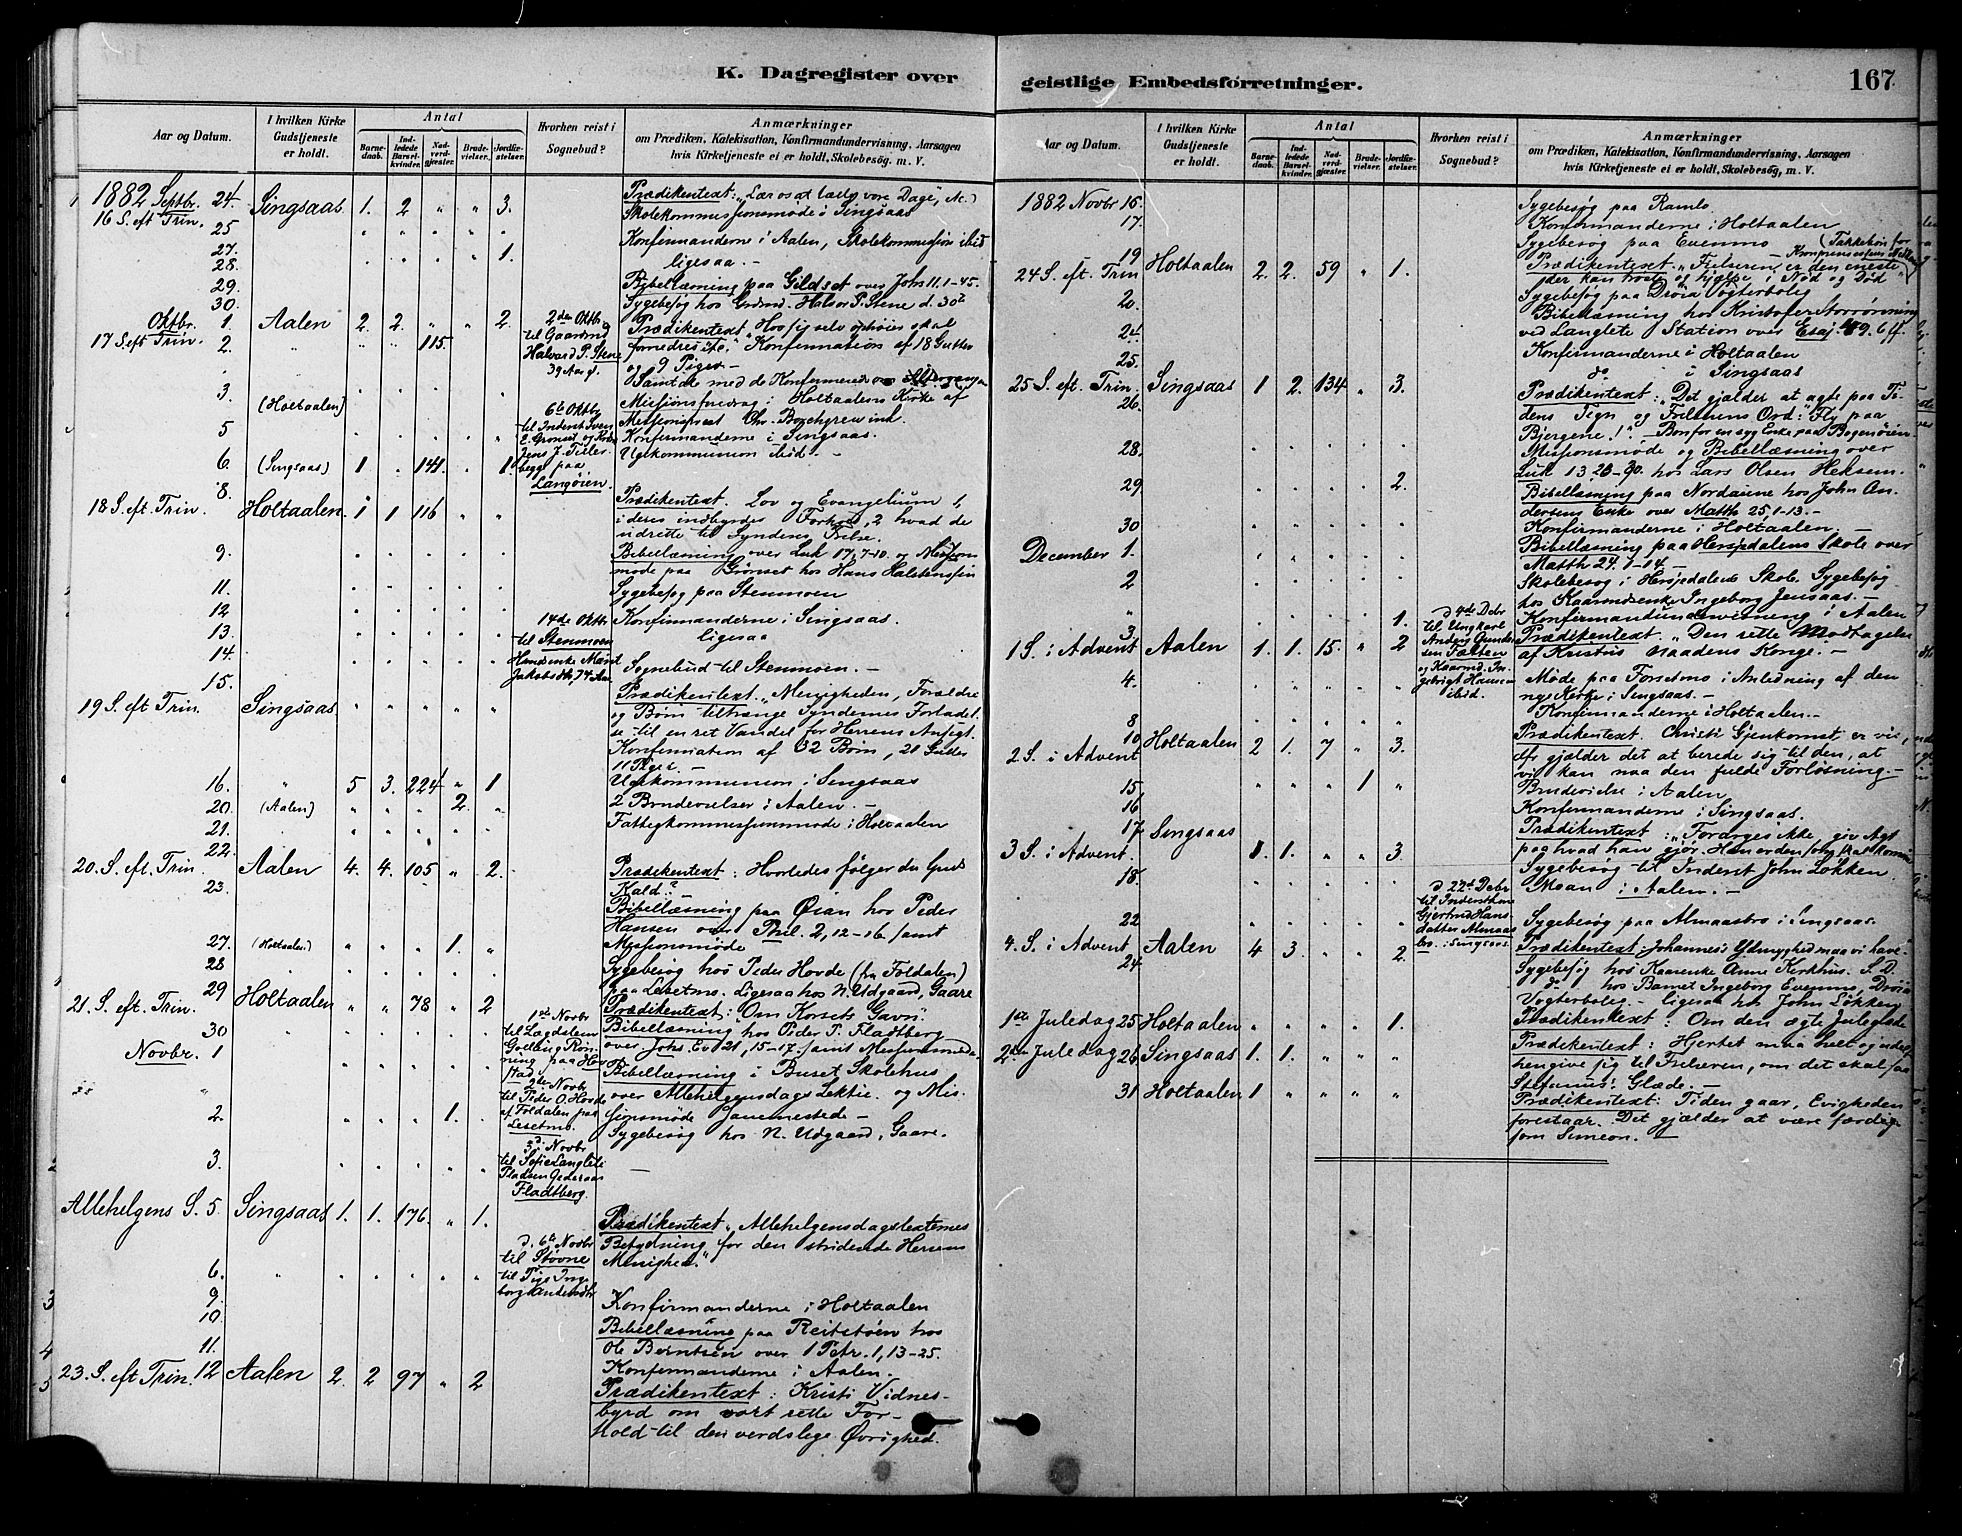 K. Dagregister over
Aar og Datum.
I hvilken Kirke Gudstjeneste er holdt.
Antal
Barnedaab.
Indledede Barselkvinder.
Nadverdgjæster.
Brudevielser.
Jordfæstelser.
Hvorhen reist i Sognebud?
Anmærkninger
om Prædiken, Katekisation, Konfirmandundervisning, Aarsagen
hvis Kirketjeneste ei er holdt, Skolebesög, m. V.
1882 Septbr. 24. Singsaas 1. 2 " " 3. Prædikentext: "Lær os at tælle vore Dage, &c.)
16 S. eft Trin. Skolekommissionsmøde i Singsaas
25
27. 1. Konfirmanderne i Aalen, Skolekommission ibid
28. ligesaa. —
29. Bibellæsning paa Gildset over John 11. 1-45.
30. Sygebesøg hos Grdmd. Halvor P. Stene d. 30te
Oktbr. 1. Aalen 2. 2. " " 2. 2den Oktbr. Prædikentext "Hvo sig selv ophøier skal
17 S. eft Trin. 2. " " " 115. til Gaardmd fornedres &c." Konfirmation af 18 Gutter
Halvard P. Stene og 9 Piger —
39 Aar gl. Samt de med de Konfirmerede
3. (Holtaalen) Missionsforedrag i Holtaalens Kirke af
6te Oktbr Missionsprest Chr. Borchgrevink.
5 til Inderst Sven Konfirmanderne i Singsaas.
6. (Singsaas) 1 . 141 . 1. begge paa Ugekommunion ibid. —
Langøien.
8. Prædikentext Lov og Evangelium 1,
18 S. eft. Trin. Holtaalen. 1 1 116 " " i deres indbyrdes Forhold, 2 hvad de
udrette til Synderes Frelse.
9. Bibellæsning over Luk 17, 7-10. og Missions
møde paa Grønset hos Hans Halstensen
11. Sygebesøg paa Stenmoen
12 14de Oktbr Konfirmanderne i Singsaas.
13. til Stenmoen ligesaa
14. Sognebud til Stenmoen. —
15. Prædikentext "Menigheden, Forældre
19 S. eft Trin. Singsaas " " " " " og Børn tiltrænge Syndernes Forladel
se til en ret Vandel for Herrens Ansigt.
Konfirmation af 32 Børn, 21 Gutter
11 Piger. —
16. " 5 3. 224 " 1 Ugekommunion i Singsaas
20. (Aalen) " " " 2. " 2 Brudevielser i Aalen. —
21. Fattigkommissionsmøde i Holtaalen
22.
20. S. eft. Trin. Aalen 4. 4. 105 " 2. Prædikentext: Hvorledes følger du Guds
23. Kald?
Bibellæsning paa Øian hos Peder
Hansen over Phil. 2, 12-16 samt
27. (Holtaalen) " " " 1. " Missionsmøde
28 Sygebesøg hos Peder Hovde (fra Foldalen)
29 Holtaalen " " 78 " 2 paa Lesetmo. Ligesaa hos N. Udgaard, Gaare
21. S. eft Trin. 1ste Novbr Prædikentext: Om Korsets Gavn.
30 Bibellæsning hos Peder T. Fladtberg
Novbr. 1 over Johs. Ev. 21, 15-17. samt Missionsmøde
Bibellæsning i Buset Skolehus
2den Novbr over Allehelgensdags Lektie. og Mis-
til Peder O. Hovde
2. 1. af Foldalen paa sionsmøde Sammesteds —
Lesetmo. Sygebesøg hos N. Udgaard, Gaare.
3. 3die Novbr
til Sofie Langlete
Fladtberg.
Allehelgens S. 5. Singsaas 1. 1. 176. " 1. Prædikentext "Allehelgensdagstexternes
d. 6te Novbr Betydning for den stridende Herrens
til Støvne Menighed."
6. til Pige Inge
9.
10. Konfirmanderne i Holtaalen
Bibellæsning paa Reitstøen hos
11. Ole Berntsen over 1 Petr. 1, 13-25.
Konfirmanderne i Aalen.
23. S. eft Trin. 12 Aalen 2. 2 97 " 2 Prædikentext: Kristi Vidnes-
byrd om vort rette For-
hold til den verdslige Øvrighed.
geistlige Embedsforretninger.
167
Aar og Datum.
I hvilken Kirke Gudstjeneste er holdt.
Antal
Barnedaab.
Indledede Barselkvinder.
Nadverdgjæster.
Brudevielser.
Jordfæstelser.
Hvorhen reist i Sognebud?
Anmærkninger
om Prædiken, Katekisation, Konfirmandundervisning, Aarsagen
hvis Kirketjeneste ei er holdt, Skolebesög, m. V.
1882 Novbr 15. Sygebesøg paa Ramlo
17. Konfirmanderne i Holtaalen
Sygebesøg paa Evenmo (Takkebøn for
19 Holtaalen 2. 2. 59 " 1. Prædikentext. "Frelseren er den eneste
24 S. eft. Trin der kan trøste og hjelpe i Nød og Død
20. Sygebesøg paa Drøia Vogterbolig
Bibellæsning hos Kristofer Storrønning
24. ved Langlete Station over Esaj 49. 6 ff.
Konfirmanderne i Holtaalen
25. do i Singsaas
25 S. eft. Trin. Singsaas 1 2. 134 " 3. Prædikentext: "Det gjælder at agte paa Ti-
26. dens Tegn og Frelserens Ord: Fly paa
Bjergene!" —
28. Missionsmøde og Bibellæsning over
Luk 13, 20-30. hos Lars Olsen Heksem.
29 2. Bibellæsning paa Nordaune hos John An
dersens Enke over Matth 25 1-13. —
30 Konfirmanderne i Holtaalen. —
December 1. Bibellæsning paa Hersjedalens Skole over
Matth 24. 1-14. —
2 Skolebesøg i Hersjedalens Skole. Sygebesøg
hos Kaarmdsenke Ingeborg Jensaas. —
" 1. d. 4de Dcbr Konfirmandundervisning i Aalen
3. til Ungkarl
1 S. i Advent Aalen 1. 1. 15. " 2 Prædikentext. "Den rette Modtagelse
af Kristus Naadens Konge. —
4. Møde paa Forsetmo i Anledning af den
ibid. nye Kirke i Singsaas. —
8 Konfirmanderne i Holtaalen. —
10 Holtaalen 2 1. 7 " 3. Prædikentext. Christi Gjenkomst er vis,
2 S. i Advent dfr gjælder det at berede sig til den, at
vi kan naa den fulde Forløsning. —
15 1 Brudevielse i Aalen
16 Konfirmanderne i Singsaas.
17. Singsaas Prædikentext: "Forarges ikke, giv Agt
3 S. i Advent. 1. 1. " " 3. paa hvad han gjør. Han er den som skal komme
18. Sygebesøg til Inderst John Løkken
d. 22de Dcbr Moan i Aalen. —
22 Sygebesøg paa Almaastrø i Singsaas.
4. S. i Advent Aalen 4 3. " " 2. Prædikentext: Johannes's Ydmyghed maa vi have
24 Sygebesøg hos Kaarenke Anne Kirkhus. S. D.
do hos Barnet Ingeborg Evenmo, Drøia
Vogterbolig. — ligesaa hos John Løkken
1ste Juledag 25 Holtaalen " " " " 1. Prædikentext: Om den ægte Juleglæde
2den Juledag 26. Singsaas 1. 1. " " " Prædikentext: Hjertet maa helt og udelt
hengive sig til Frelseren, om det skal faa
Stefanus's Glæde. —
31 Holtaalen 1 " " " " Prædikentext: Tiden gaar, Evigheden
forestaar. Det gjælder at være færdig
som Simeon. —